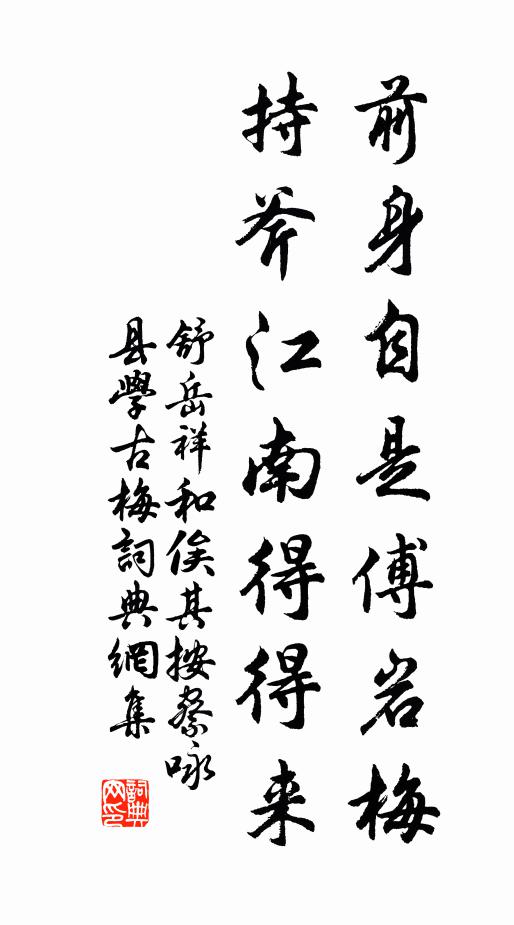 前身自是傅岩梅
持斧江南得得来
舒岳祥和俟其按察咏
县學古梅詞典網集
詞典网印